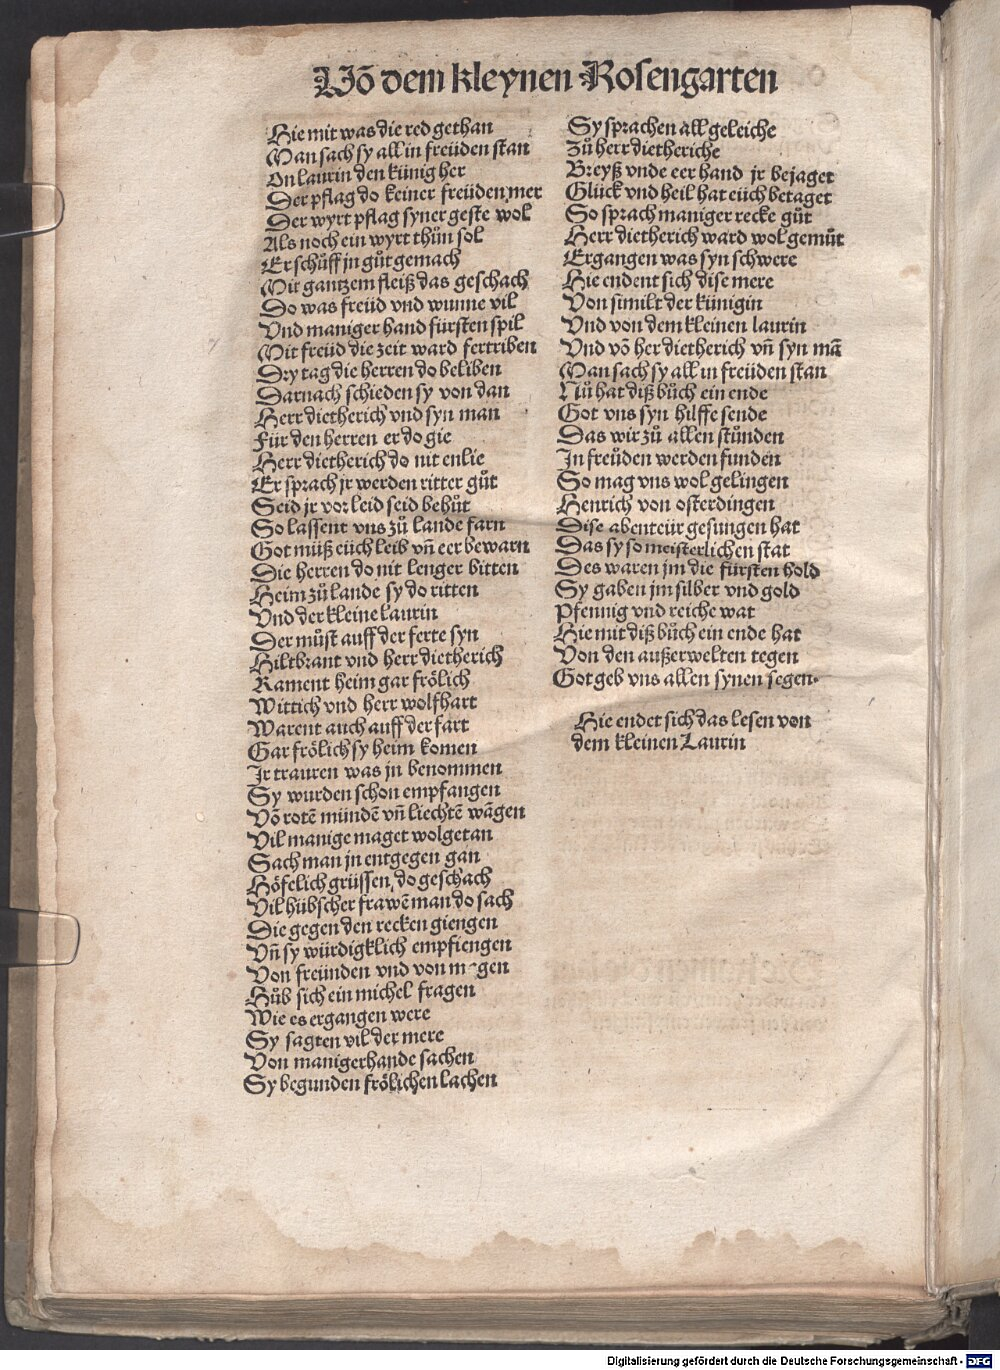 Võ dem kleynen Rosengarten
Hie mit was die red gethan
Man sach sy all in freüden stan
On laurin den künig her
Der pflag do keiner freüden mer
Der wyrt pflag syner geste wol
Als noch ein wyrt thůn sol
Er schůff jn gůt gemach
Mit gantzem fleiß das geschach
Do was freüd vnd wunne vil
Vnd maniger hand fürsten spil
Mit freüd die zeit ward fertriben
Dry tag die herren do beliben
Darnach schieden sy von dan
Herr dietherich vnd syn man
Für den herren er do gie
Herr dietherich do nit enlie
Er sprach jr werden ritter gůt
Seid jr vor leid seid behůt
So lassent vns zů lande farn
Got můß eüch leib vñ eer bewarn
Die herren do nit lenger bitten
Heim zů lande sy do ritten
Vnd der kleine laurin
Der můst auff der ferte syn
Hiltbrant vnd herr dietherich
Kament heim gar frölich
Wittich vnd herr wolfhart
Warent auch auff der fart
Gar frölich sy heim komen
Jr trauren was jn benommen
Sy wurden schon empfangen
Võ rotẽ mündẽ vñ liechtẽ wãgen
Vil manige maget wolgetan
Sach man jn entgegen gan
Höfelich grüssen do geschach
Vil hübscher frawẽ man do sach
Die gegen den recken giengen
Vñ sy würdigklich empfiengen
Von freünden vnd von magen
Hůb sich ein michel fragen
Wie es ergangen were
Sy sagten vil der mere
Von manigerhande sachen
Sy begunden frölichen lachen
Sy sprachen all geleiche
Zů herr dietheriche
Breyß vnde eer hand jr bejaget
Glück vnd heil hat eüch betaget
So sprach maniger recke gůt
Herr dietherich ward wol gemůt
Ergangen was syn schwere
Hie endent sich dise mere
Von similt der künigin
Vnd von dem kleinen laurin
Vnd võ her dietherich vñ syn mã
Man sach sy all in freüden stan
Nů hat diß bůch ein ende
Got vns syn hilffe sende
Das wir zů allen stunden
In freüden werden funden
So mag vns wol gelingen
Henrich von osterdingen
Dise abenteür gesungen hat
Das sy so meisterlichen stat
Des waren jm die fürsten hold
Sy gaben jm silber vnd gold
Pfennig vnd reiche wat
Hie mit diß bůch ein ende hat
Von den außerwelten tegen
Got geb vns allen synen segen.
Hie endet sich das lesen von
dem kleinen Laurin
Digitalisierung gefördert durch die Deutsche Forschungsgemeinschaft - DFG